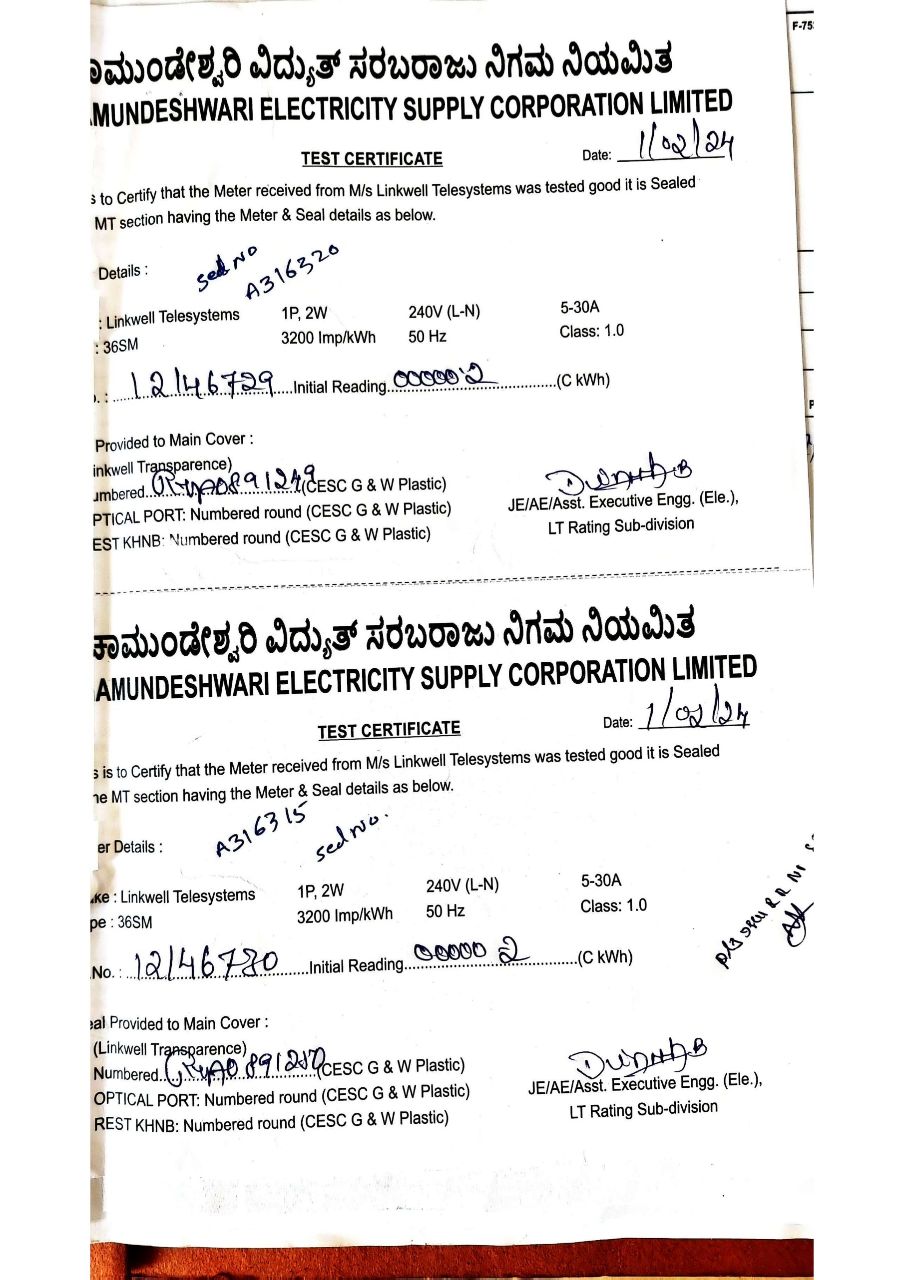 ಾಮುಂಡೇಶ್ವರಿ ವಿದ್ಯುತ್ ಸರಬರಾಜು ನಿಗಮ ನಿಯಮಿತ
F-75
AMUNDESHWARI ELECTRICITY SUPPLY CORPORATION LIMITED
TEST CERTIFICATE Date: 1/02/24
s to Certify that the Meter received from M/s Linkwell Telesystems was tested good it is Sealed
MT section having the Meter & Seal details as below.
Details : seal No A316320
: Linkwell Telesystems 1P, 2W 240V (L-N) 5-30A
: 36SM 3200 Imp/kWh 50 Hz Class: 1.0
. : 12146729 Initial Reading 000002 (C kWh)
Provided to Main Cover :
inkwell Transparence)
umbered 0891249 (CESC G & W Plastic)
PTICAL PORT: Numbered round (CESC G & W Plastic)
EST KHNB: Numbered round (CESC G & W Plastic)
JE/AE/Asst. Executive Engg. (Ele.),
LT Rating Sub-division
ಚಾಮುಂಡೇಶ್ವರಿ ವಿದ್ಯುತ್ ಸರಬರಾಜು ನಿಗಮ ನಿಯಮಿತ
AMUNDESHWARI ELECTRICITY SUPPLY CORPORATION LIMITED
TEST CERTIFICATE Date: 1/02/24
s is to Certify that the Meter received from M/s Linkwell Telesystems was tested good it is Sealed
he MT section having the Meter & Seal details as below.
er Details : A316315 seal No.
ke : Linkwell Telesystems 1P, 2W 240V (L-N) 5-30A
pe : 36SM 3200 Imp/kWh 50 Hz Class: 1.0
No. : 12146730 Initial Reading 00000 2 (C kWh)
eal Provided to Main Cover :
(Linkwell Transparence)
Numbered 0891250 (CESC G & W Plastic)
OPTICAL PORT: Numbered round (CESC G & W Plastic)
REST KHNB: Numbered round (CESC G & W Plastic)
JE/AE/Asst. Executive Engg. (Ele.),
LT Rating Sub-division